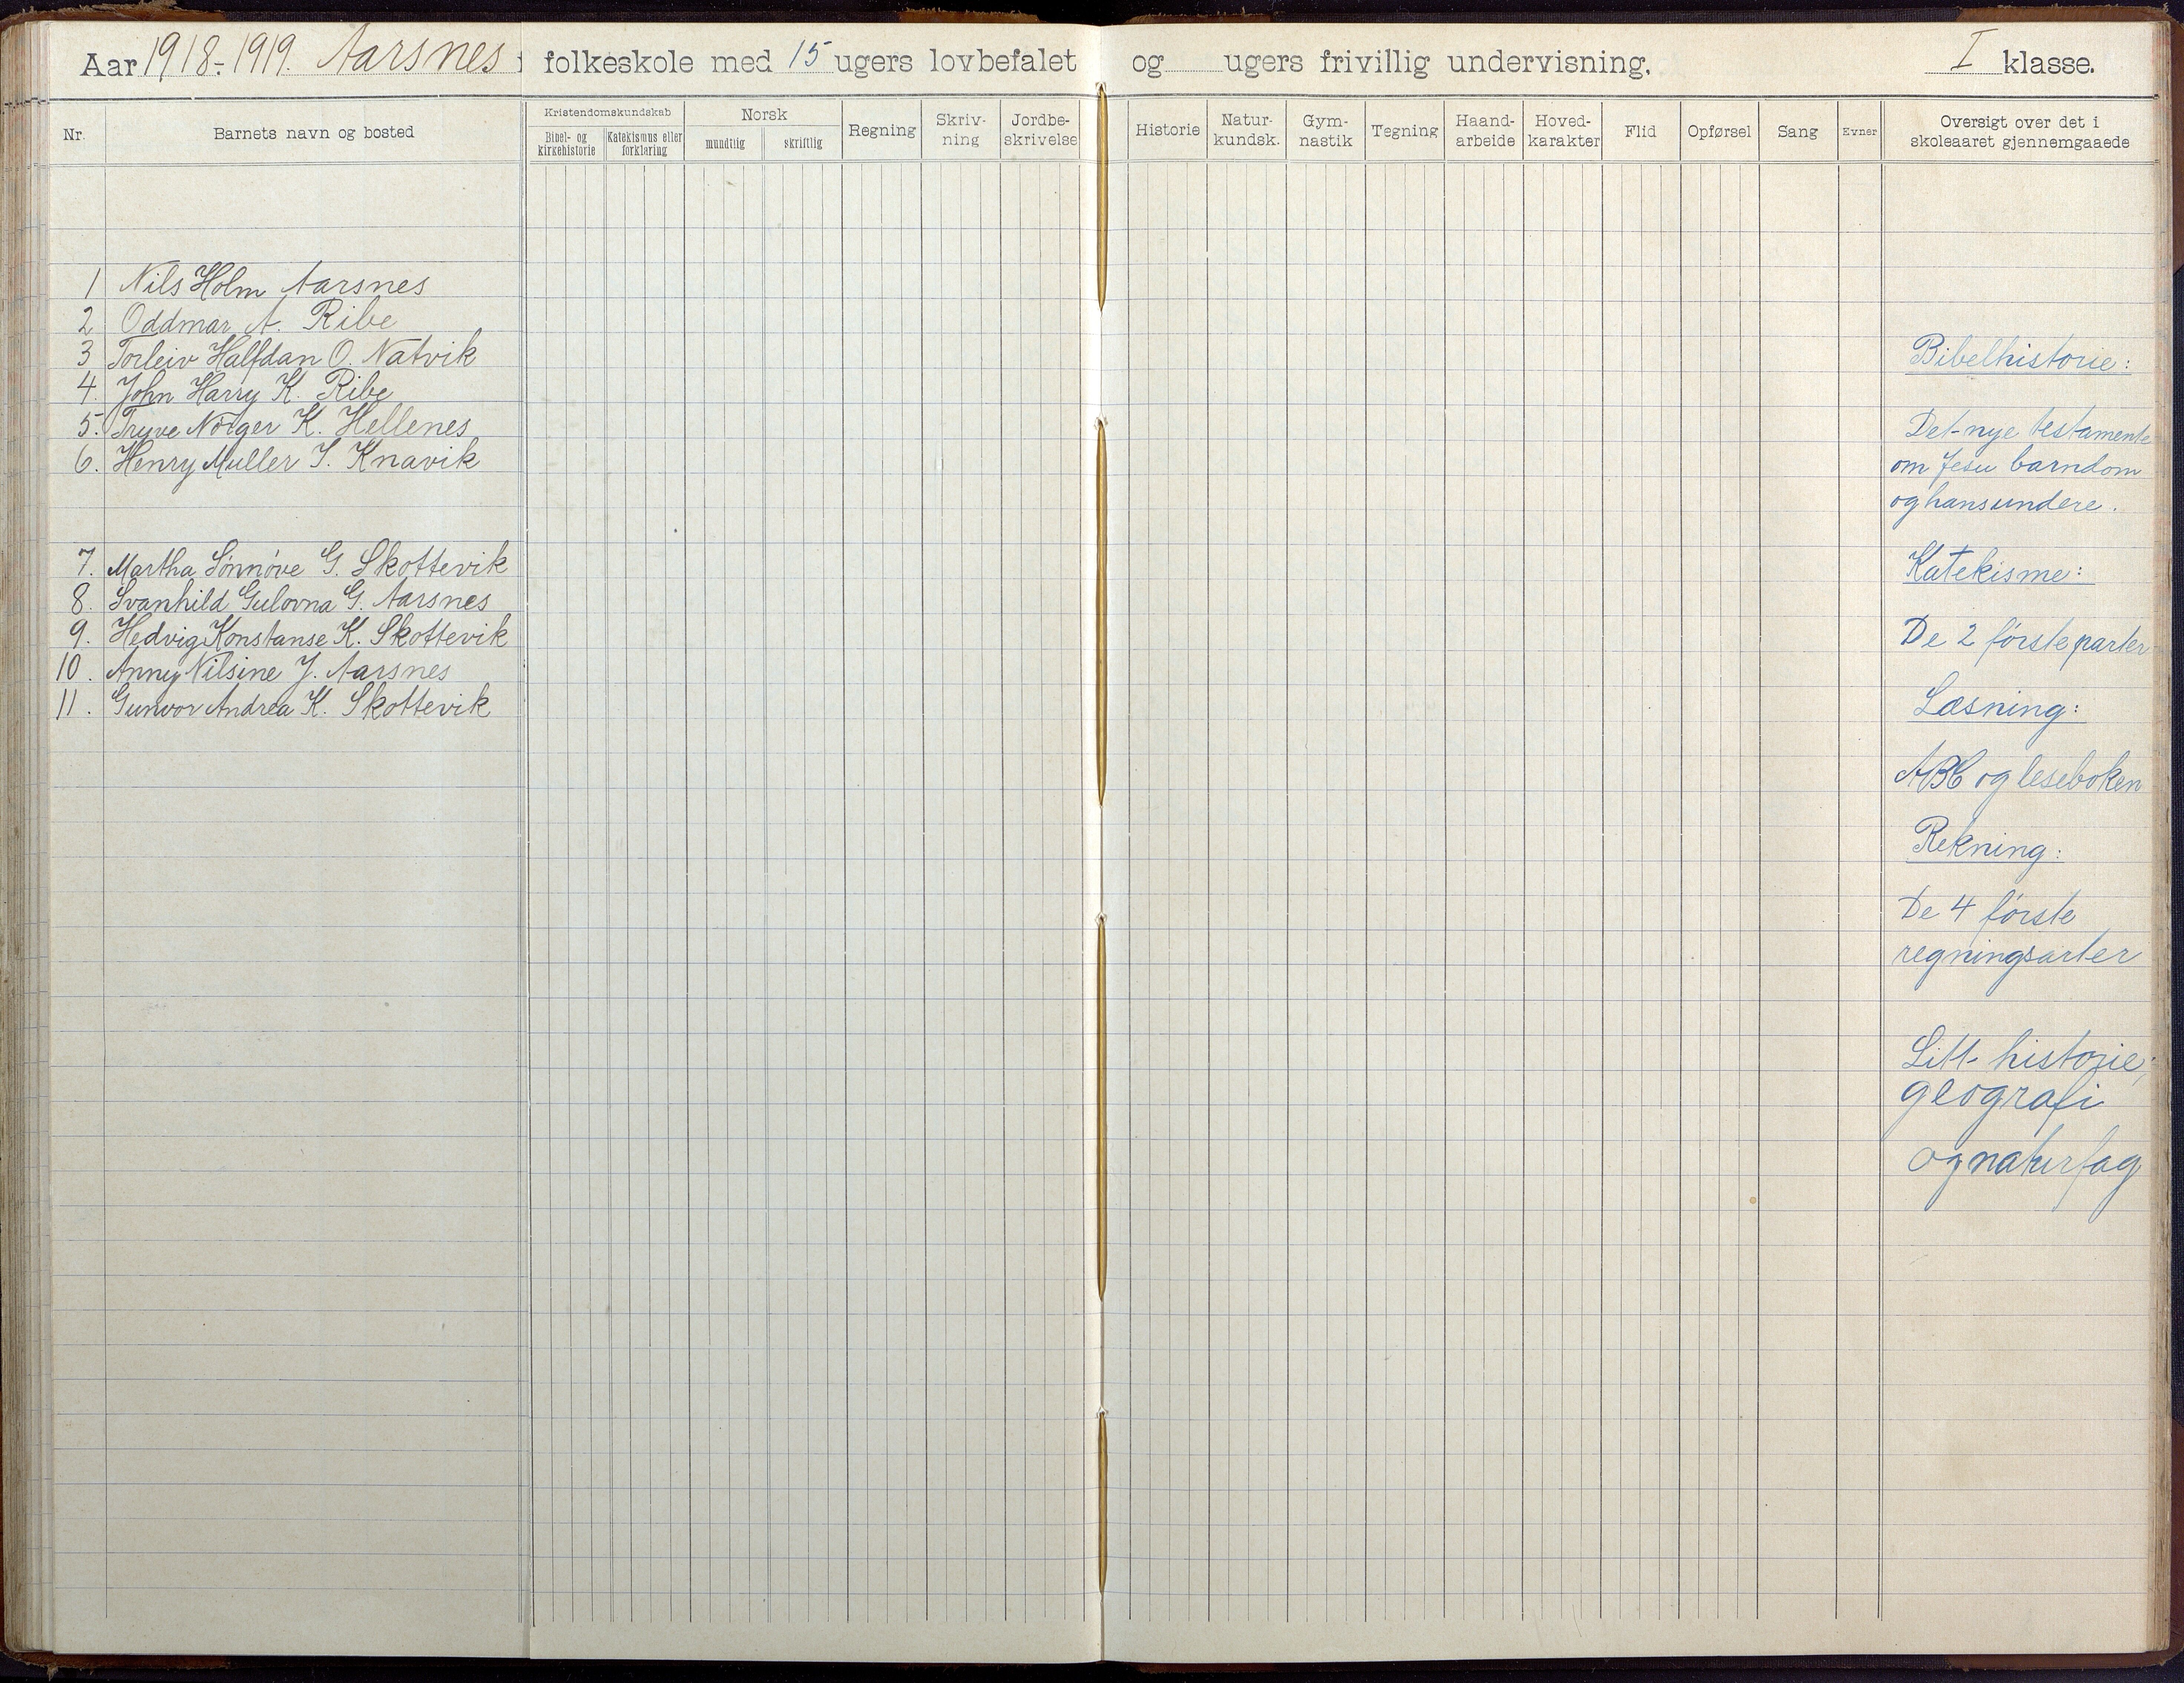 Aar 1918-1919. Aarsnes i folkeskole med 15 ugers lovbefalet og ugers frivillig undervisning. I klasse.
Nr. Barnets navn og bosted Kristendomskundskab Norsk Regning Skriv-ning Jordbe-skrivelse Historie Natur-kundsk. Gym-nastik Tegning Haand-arbeide Hoved-karakter Flid Opførsel Sang Evner Oversigt over det i
skoleaaret gjennemgaaede
Bibel- og kirkehistorie Katekismus eller forklaring mundtlig skriftlig
1 Nils Holm Aarsnes
2 Oddmar A. Ribe
3 Torleiv Halfdan O. Natvik
4. John Harry K. Ribe
5. Tryve Norger K. Hellenes
6. Henry Muller I. Knavik
7. Martha Sønnøve G. Skottevik
8. Svanhild Gulovna G. Aarsnes
9. Hedvig Konstanse K. Skottevik
10. Anny Nilsine J. Aarsnes
11. Gunvor Andrea K. Skottevik
Bibelhistorie:
Det nye testamente
om Jesu barndom
og hans undere.
Katekisme:
De 2 første parter
Læsning:
ABC og leseboken
Rekning:
De 4 første
regningsarter
Litt historie,
geografi
og naturfag